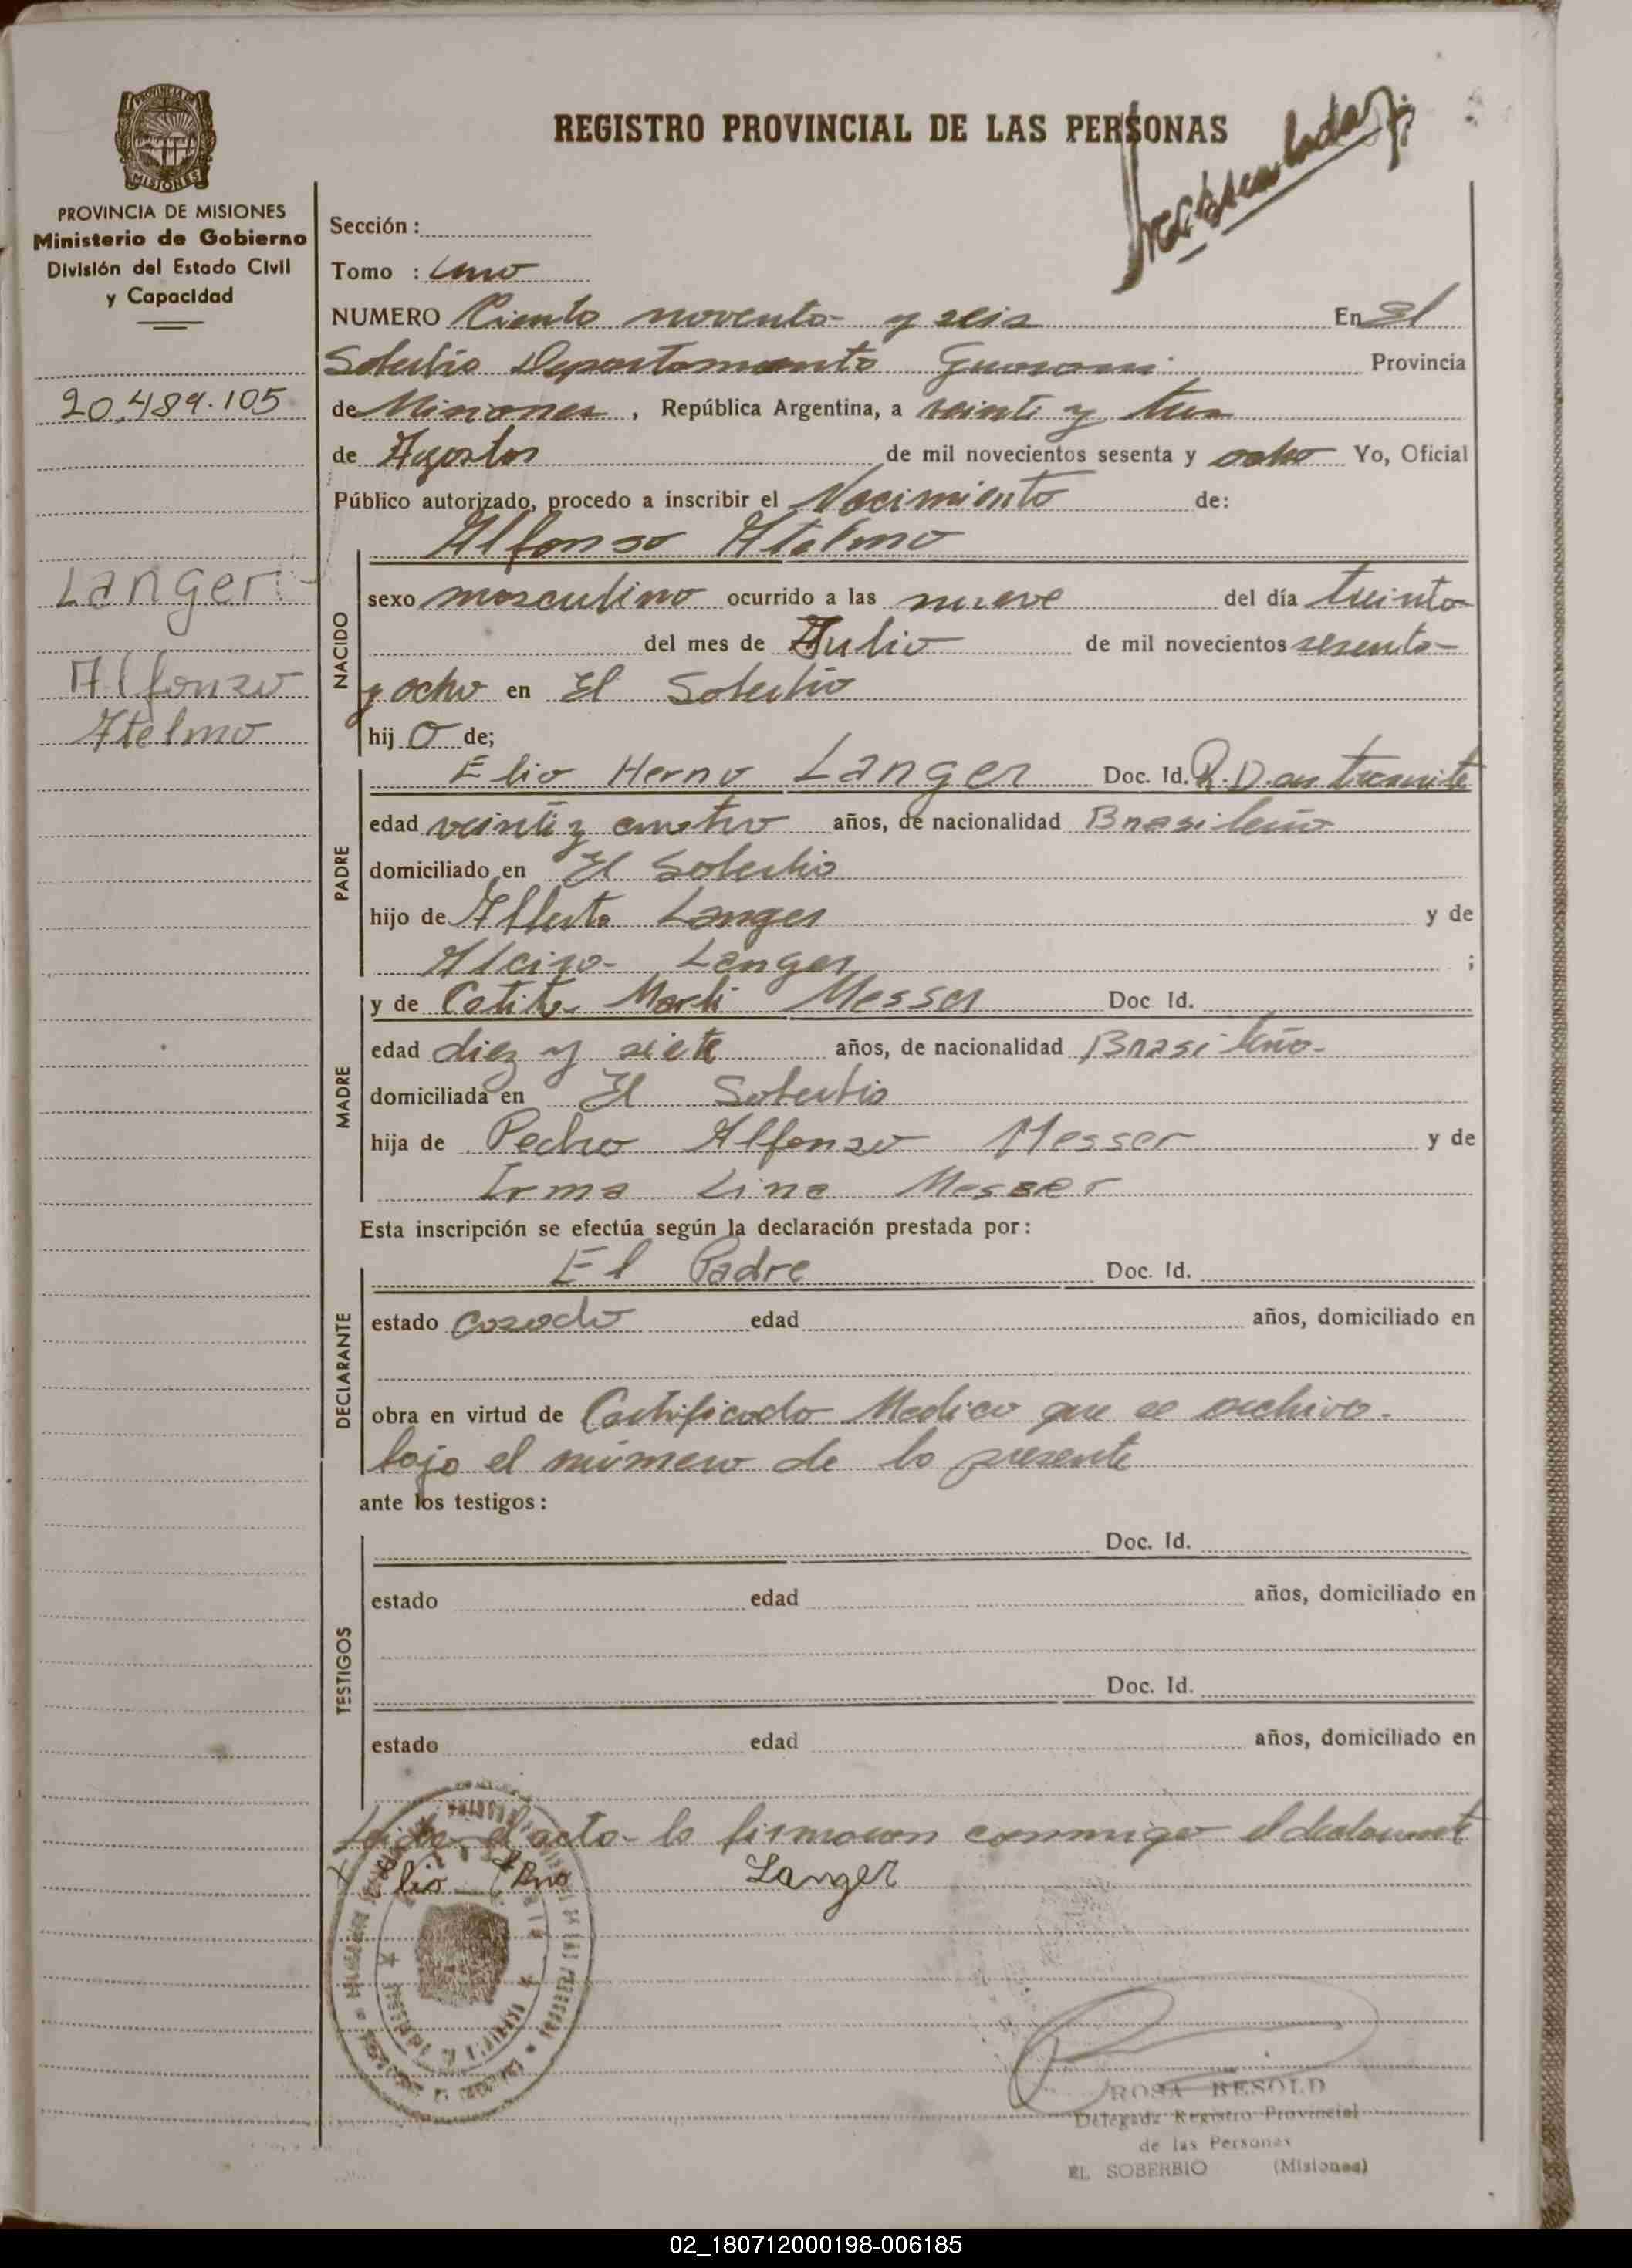 PROVINCIA DE MISIONES
Ministerio de Gobierno
División del Estado Civil
y Capacidad
20.489.105
Langer
Alfonso
Atelmo
REGISTRO PROVINCIAL DE LAS PERSONAS
Sección :
Tomo : Uno
NUMERO Ciento noventa y seis En El
Soberbio Departamento Guarani Provincia
de Misiones , República Argentina, a veinti y tres
de Agosto de mil novecientos sesenta y ocho Yo, Oficial
Público autorizado, procedo a inscribir el Nacimiento de:
Alfonso Atelmo
NACIDO
sexo masculino ocurrido a las nueve del día treinta
del mes de Julio de mil novecientos sesenta
y ocho en El Soberbio
hij o de;
PADRE
Elio Herno Langer Doc. Id. R.D. en tramite
edad veinti y cuatro años, de nacionalidad Brasileño
domiciliado en El Soberbio
hijo de Alberto Langer y de
Alcira Langer ;
MADRE
y de Marli Messer Doc Id.
edad diez y siete años, de nacionalidad Brasileña
domiciliada en El Soberbio
hija de Pedro Alfonso Messer y de
Irma Lina Messer
Esta inscripción se efectúa según la declaración prestada por:
DECLARANTE
El Padre Doc. Id.
estado Casado edad años, domiciliado en
obra en virtud de Certificado Medico que se archiva
bajo el número de la presente
ante los testigos:
TESTIGOS
Doc. Id.
estado edad años, domiciliado en
Doc. Id.
estado edad años, domiciliado en
Leida el acta la firmaron conmigo el declarante
Elio Erno Langer
ROSA BESOLD
Delegada Registro Provincial
de las Personas
EL SOBERBIO (Misiones)
02_180712000198-006185